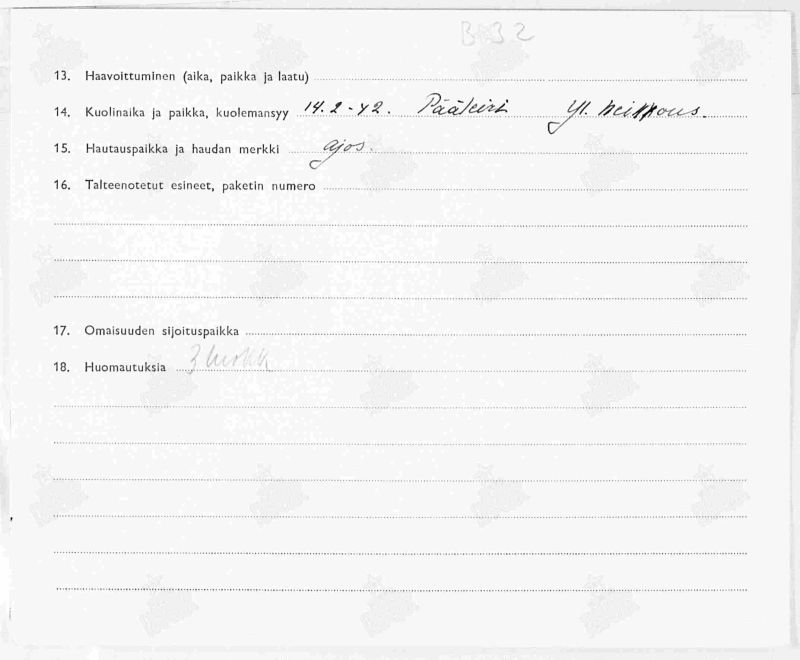 B 32
13. Haavoittuminen (aika, paikka ja laatu)
14. Kuolinaika ja paikka, kuolemansyy 14.2-42. Pääleiri Yl. heikkous.
15. Hautauspaikka ja haudan merkki ajos.
16. Talteenotetut esineet, paketin numero
17. Omaisuuden sijoituspaikka
18. Huomautuksia 3 luokk